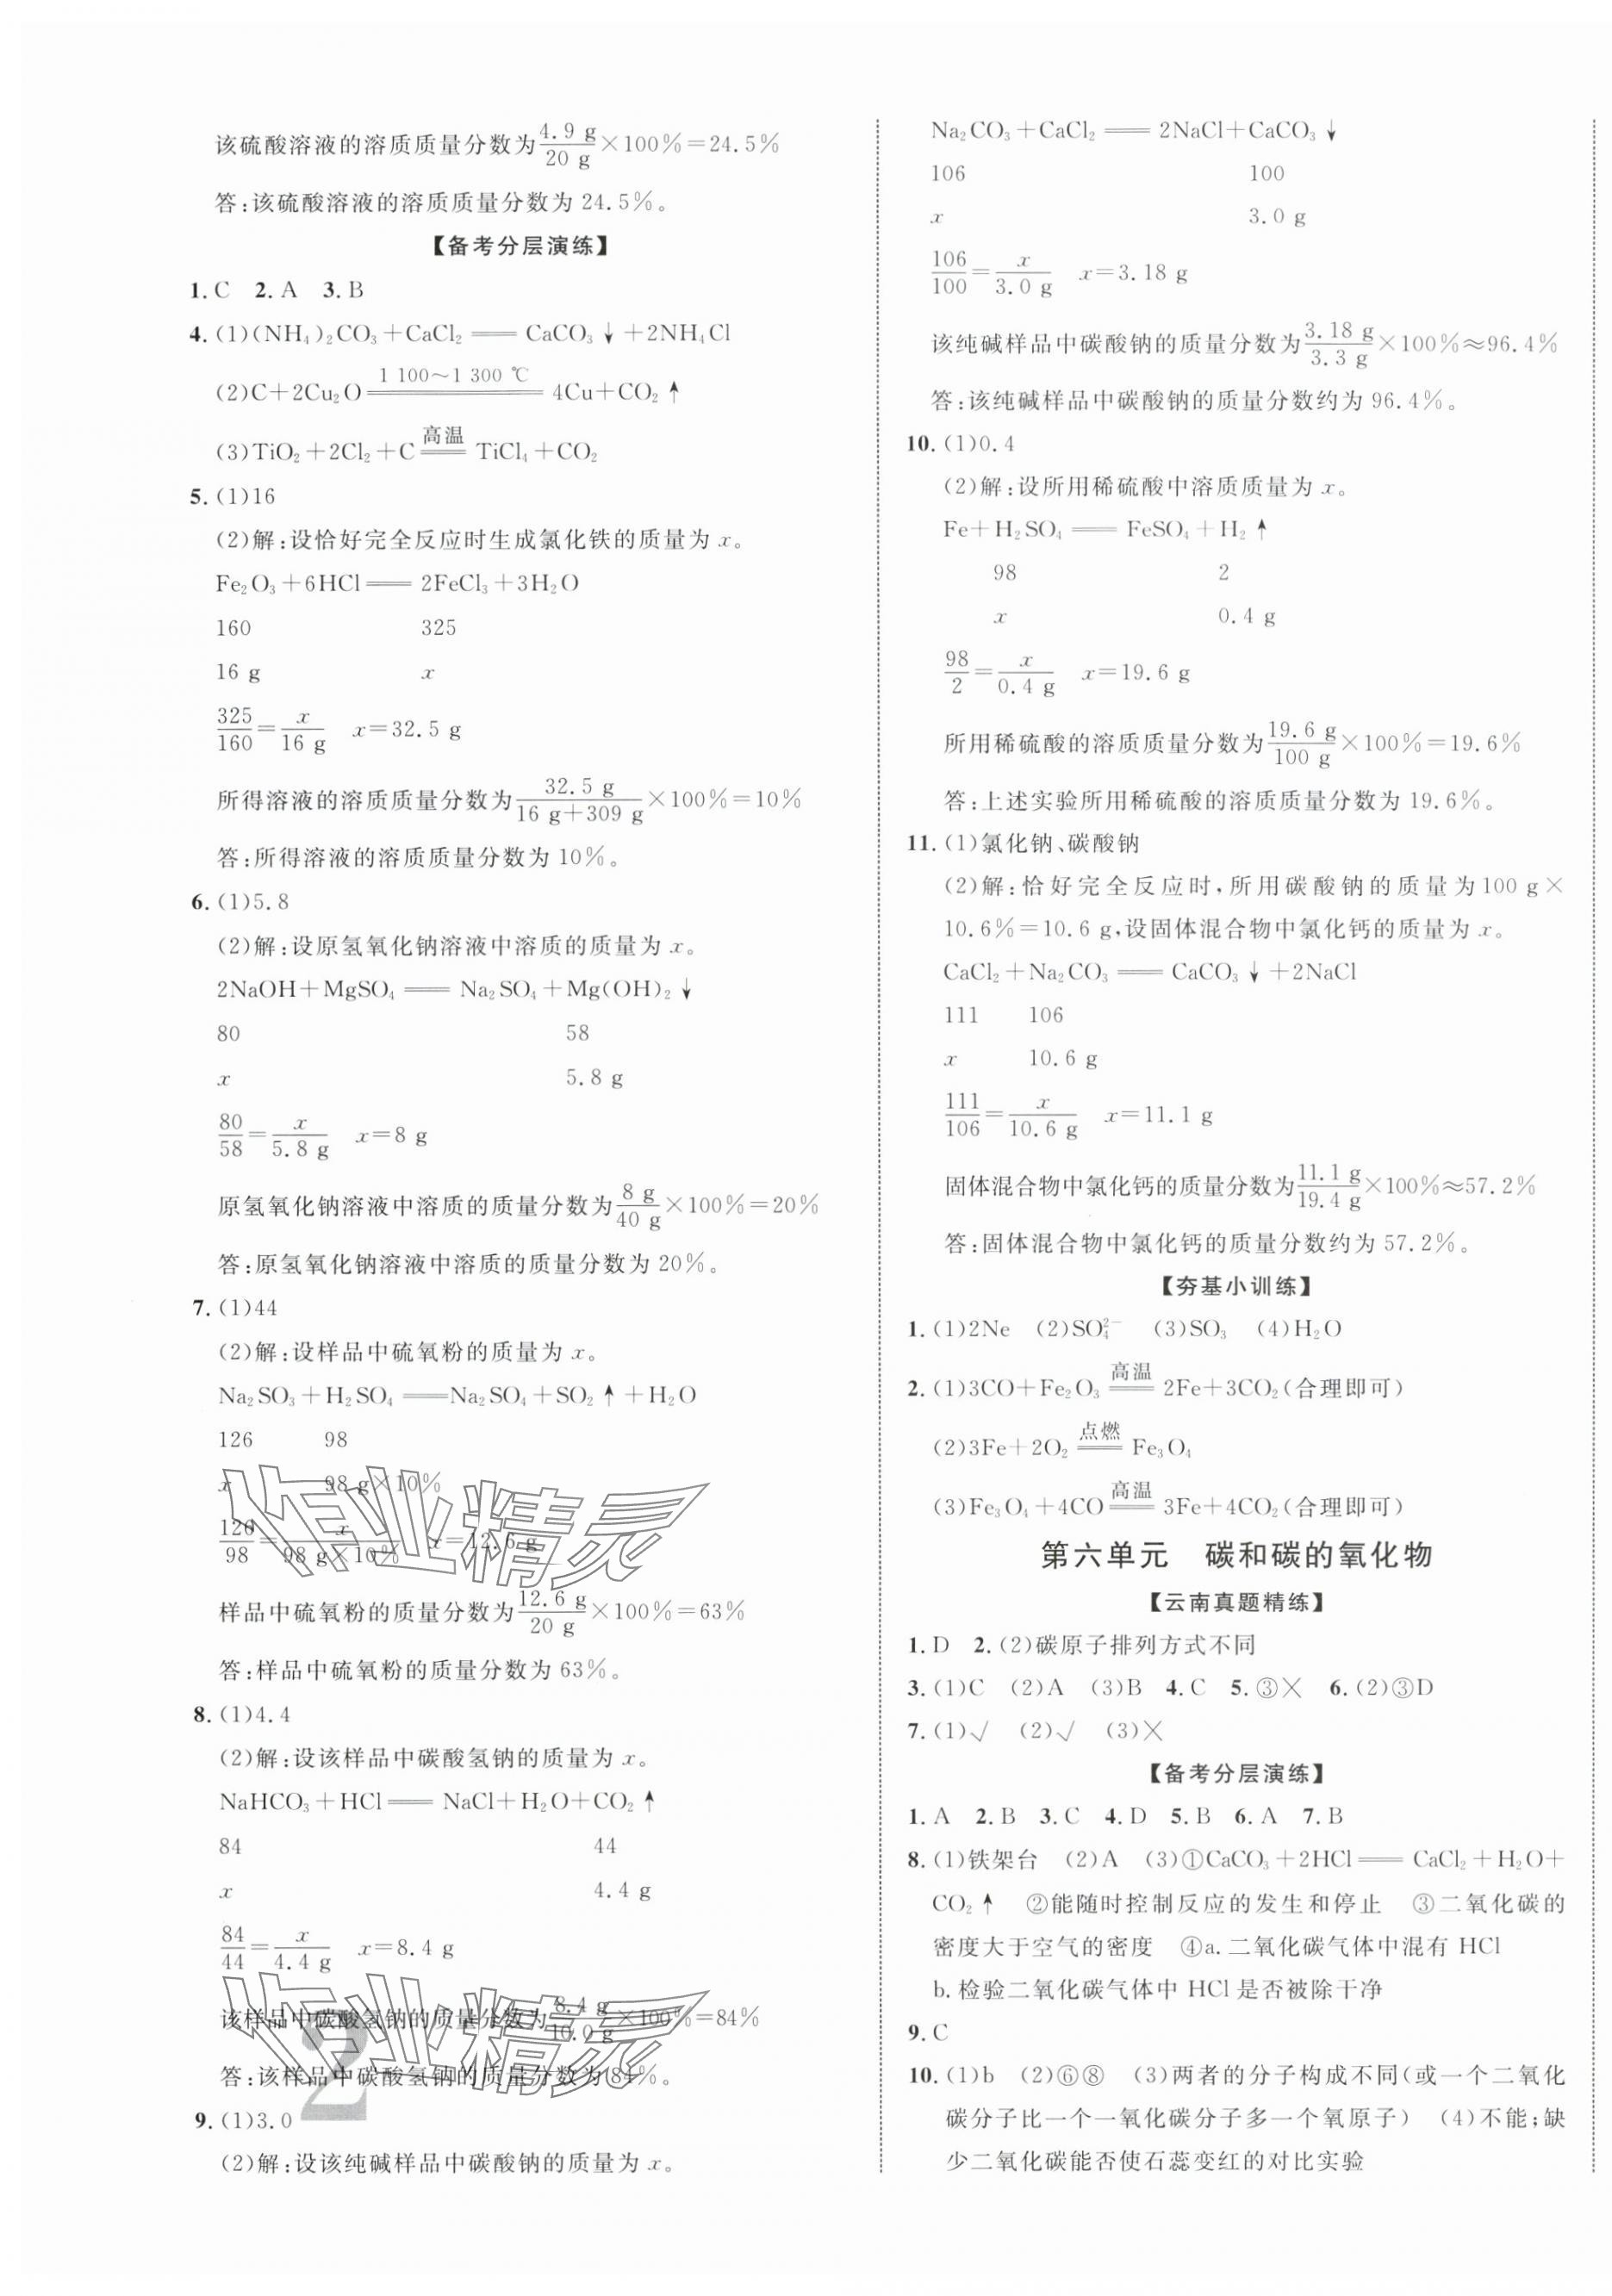 该硫酸溶液的溶质质量分数为4.9 g/20 g×100%=24.5%
答:该硫酸溶液的溶质质量分数为 24.5%。
【备考分层演练】
1. C 2. A 3. B
4. (1)(NH₄)₂CO₃+CaCl₂══CaCO₃↓+2NH₄Cl
(2)C+2Cu₂O ══(1 100~1 300 ℃) 4Cu+CO₂↑
(3)TiO₂+2Cl₂+C ══(高温) TiCl₄+CO₂
5. (1)16
(2)解:设恰好完全反应时生成氯化铁的质量为 x。
Fe₂O₃+6HCl══2FeCl₃+3H₂O
160 325
16 g x
325/160=x/16 g x=32.5 g
所得溶液的溶质质量分数为32.5 g/(16 g+309 g)×100%=10%
答:所得溶液的溶质质量分数为 10%。
6. (1)5.8
(2)解:设原氢氧化钠溶液中溶质的质量为 x。
2NaOH+MgSO₄══Na₂SO₄+Mg(OH)₂↓
80 58
x 5.8 g
80/58=x/5.8 g x=8 g
原氢氧化钠溶液中溶质的质量分数为8 g/40 g×100%=20%
答:原氢氧化钠溶液中溶质的质量分数为 20%。
7. (1)44
(2)解:设样品中硫氧粉的质量为 x。
Na₂SO₃+H₂SO₄══Na₂SO₄+SO₂↑+H₂O
126 98
x 98 g×10%
126/98=x/(98 g×10%) x=12.6 g
样品中硫氧粉的质量分数为12.6 g/20 g×100%=63%
答:样品中硫氧粉的质量分数为 63%。
8. (1)4.4
(2)解:设该样品中碳酸氢钠的质量为 x。
NaHCO₃+HCl══NaCl+H₂O+CO₂↑
84 44
x 4.4 g
84/44=x/4.4 g x=8.4 g
该样品中碳酸氢钠的质量分数为8.4 g/10.0 g×100%=84%
答:该样品中碳酸氢钠的质量分数为 84%。
9. (1)3.0
(2)解:设该纯碱样品中碳酸钠的质量为 x。
Na₂CO₃+CaCl₂══2NaCl+CaCO₃↓
106 100
x 3.0 g
106/100=x/3.0 g x=3.18 g
该纯碱样品中碳酸钠的质量分数为3.18 g/3.3 g×100%≈96.4%
答:该纯碱样品中碳酸钠的质量分数约为 96.4%。
10. (1)0.4
(2)解:设所用稀硫酸中溶质质量为 x。
Fe+H₂SO₄══FeSO₄+H₂↑
98 2
x 0.4 g
98/2=x/0.4 g x=19.6 g
所用稀硫酸的溶质质量分数为19.6 g/100 g×100%=19.6%
答:上述实验所用稀硫酸的溶质质量分数为 19.6%。
11. (1)氯化钠、碳酸钠
(2)解:恰好完全反应时,所用碳酸钠的质量为100 g×
10.6%=10.6 g,设固体混合物中氯化钙的质量为 x。
CaCl₂+Na₂CO₃══CaCO₃↓+2NaCl
111 106
x 10.6 g
111/106=x/10.6 g x=11.1 g
固体混合物中氯化钙的质量分数为11.1 g/19.4 g×100%≈57.2%
答:固体混合物中氯化钙的质量分数约为 57.2%。
【夯基小训练】
1. (1)2Ne (2)SO₄²⁻ (3)SO₃ (4)H₂O
2. (1)3CO+Fe₂O₃ ══(高温) 2Fe+3CO₂(合理即可)
(2)3Fe+2O₂ ══(点燃) Fe₃O₄
(3)Fe₃O₄+4CO ══(高温) 3Fe+4CO₂(合理即可)
第六单元 碳和碳的氧化物
【云南真题精练】
1. D 2. (2)碳原子排列方式不同
3. (1)C (2)A (3)B 4. C 5. ③× 6. (2)③D
7. (1)√ (2)√ (3)×
【备考分层演练】
1. A 2. B 3. C 4. D 5. B 6. A 7. B
8. (1)铁架台 (2)A (3)①CaCO₃+2HCl══CaCl₂+H₂O+
CO₂↑ ②能随时控制反应的发生和停止 ③二氧化碳的
密度大于空气的密度 ④a. 二氧化碳气体中混有 HCl
b. 检验二氧化碳气体中 HCl 是否被除干净
9. C
10. (1)b (2)⑥⑧ (3)两者的分子构成不同(或一个二氧化
碳分子比一个一氧化碳分子多一个氧原子) (4)不能;缺
少二氧化碳能否使石蕊变红的对比实验
作业精灵
作业精灵
2